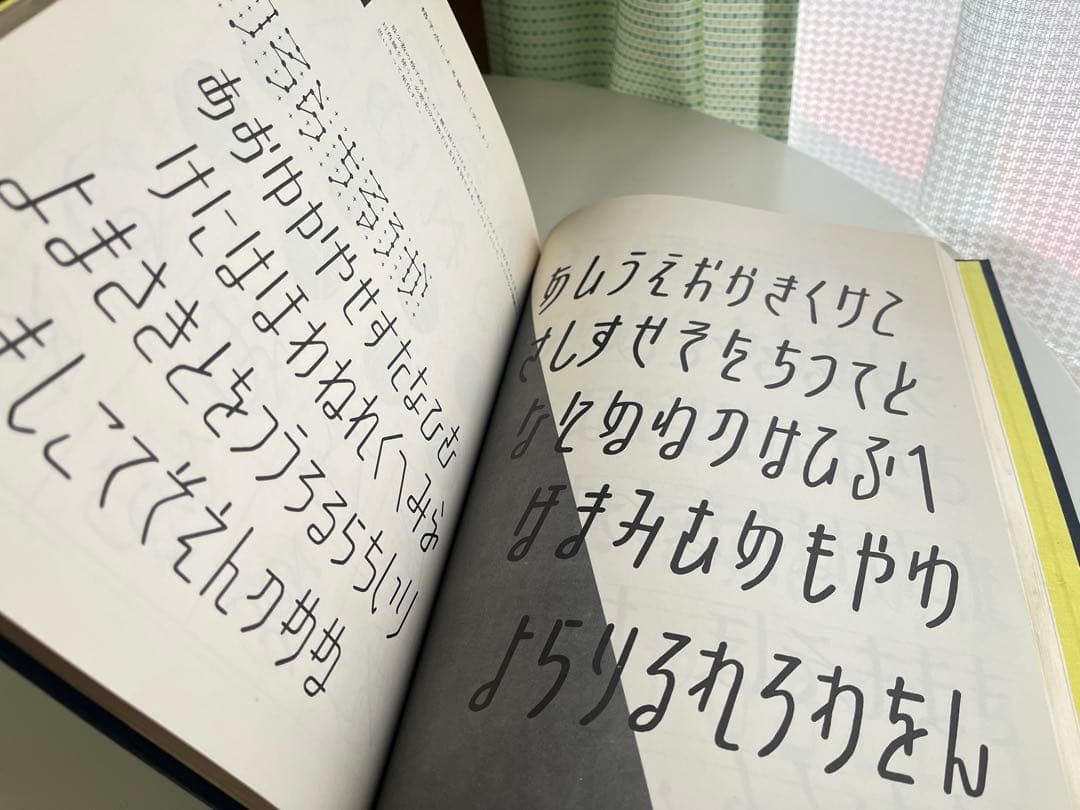 あおゆかやせすたなひさ
けにはほわねれくへみふ
よまさきとをつうろるらちいり
もしこてそえんのめぬ
あいうえおかきくけこ
さしすせそたちつてと
なにぬねのはひふへ
ほまみむめもやゆ
よらりるれろわをん